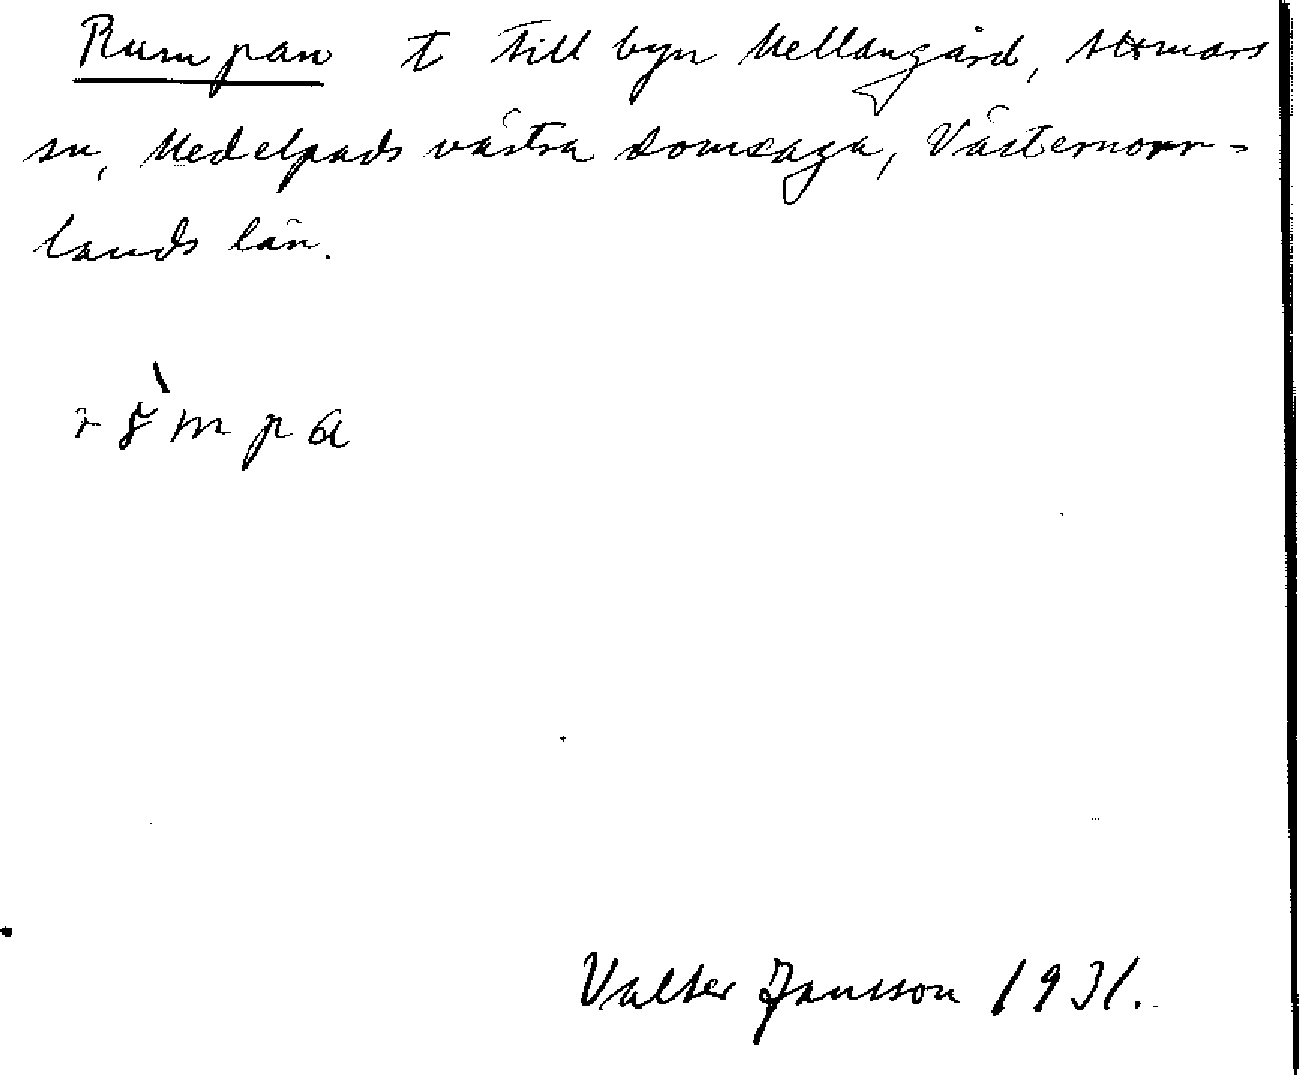 Rumpan t till byn Mellangård, Attmars
sn, Medelpads västra domsaga, Västernorr-
lands län.
Valter Jansson 1931.